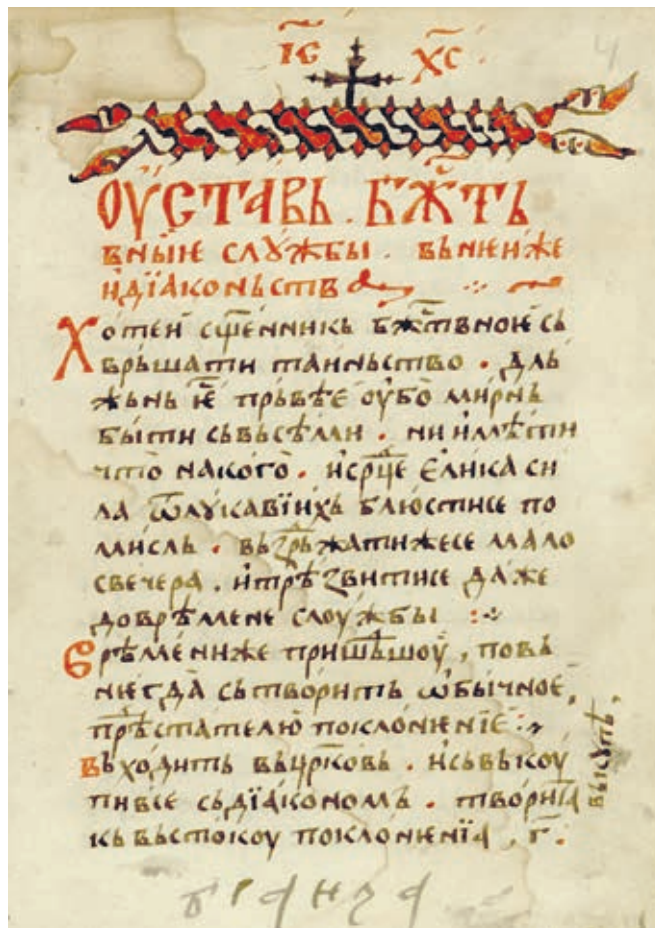 ІС҃ ХС҃
4
ОУ҆СТАВЬ . БЖ҃ТЬ
ВНЫІЕ СЛУЖБЫ . ВЬ НІЕНЖЕ
И҆ДЇАКОНЬСТВА
Хотеи сщ҃енникь бж҃твноіе сь
врьшати таиньство . дль
жьнь ѥ҃ прьвѣѥ оубо мирнь
быти сьвьсѣми . ни имѣти
что на кого . исрⷣце елика си
ла ѿлукавїихь блюстисе по
мысль . вьздрьжатижесе мало
свечера . итрѣзвитисе даже
до врѣмене слоужбы :~
Врѣменніже пришьⷣшоу , повь
нѥгда сьтворить ѡбычное ,
прѣⷣстателю поклонѥнїе :~
вьходить вьцрк҃овь . исьвькоу
пивсе сьдїакономь . творита
кь вьстокоу поклонѥнїа , г҃ .
вькупѣ ,